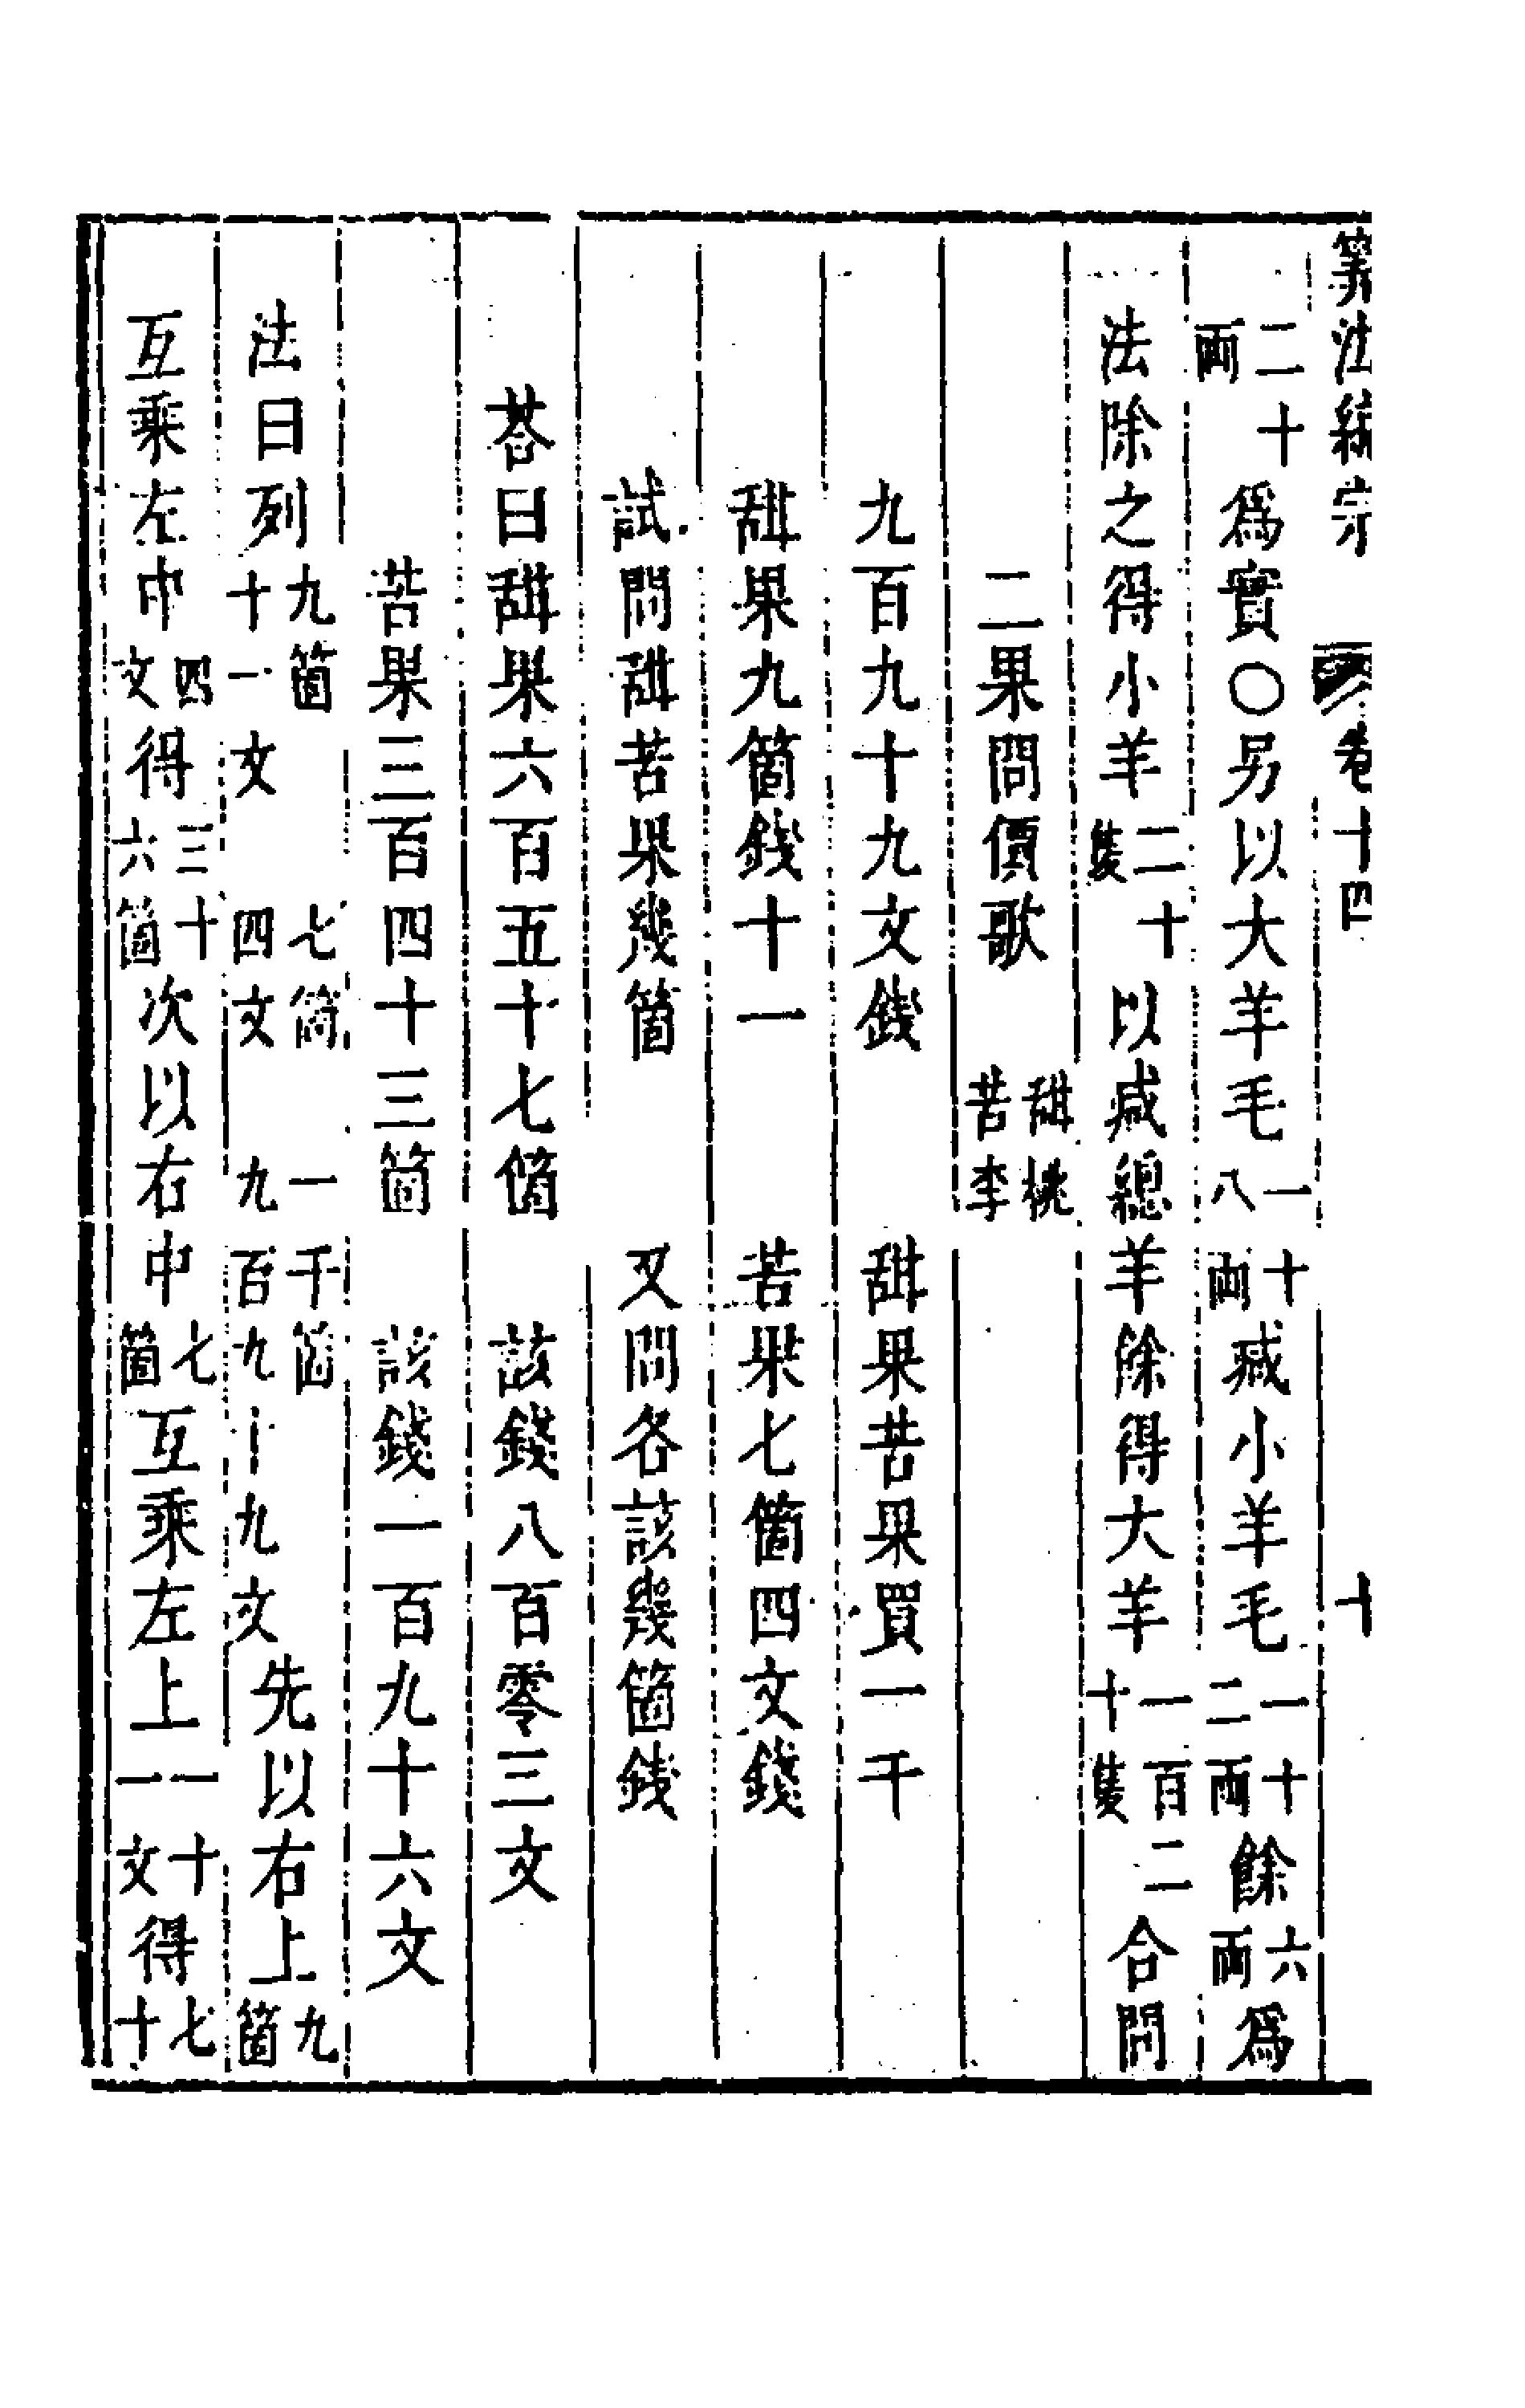 算法統宗 卷十四 十
二十兩為實○另以大羊毛一十八兩减小羊毛一十二兩餘六兩為
法除之得小羊二十隻以减總羊餘得大羊一百二十隻合問
二果問價歌 甜桃苦李
九百九十九文錢 甜果苦果買一千
甜果九箇錢十一 苦果七箇四文錢
試問甜苦果幾箇 又問各該幾箇錢
荅曰甜果六百五十七箇 該錢八百零三文
苦果三百四十三箇 該錢一百九十六文
法曰列九箇十一文 七箇四文 一千箇九百九十九文先以右上九箇
互乘左中四文得三十六箇次以右中七箇互乘左上一十一文得七十